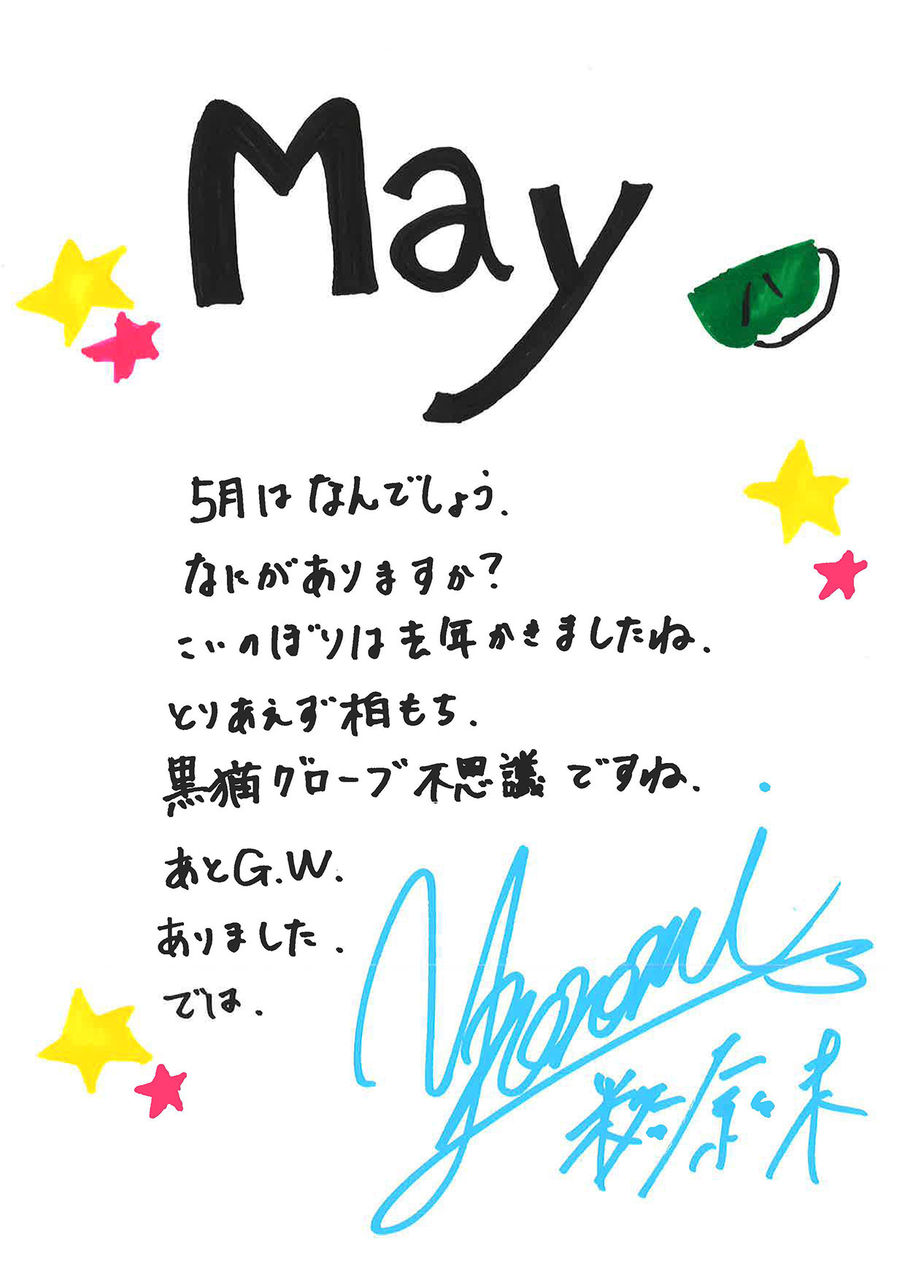 May
5月はなんでしょう.
なにがありますか?
こいのぼりは去年かきましたね.
とりあえず柏もち.
黒猫グローブ不思議ですね.
あとG.W.
ありました.
では.